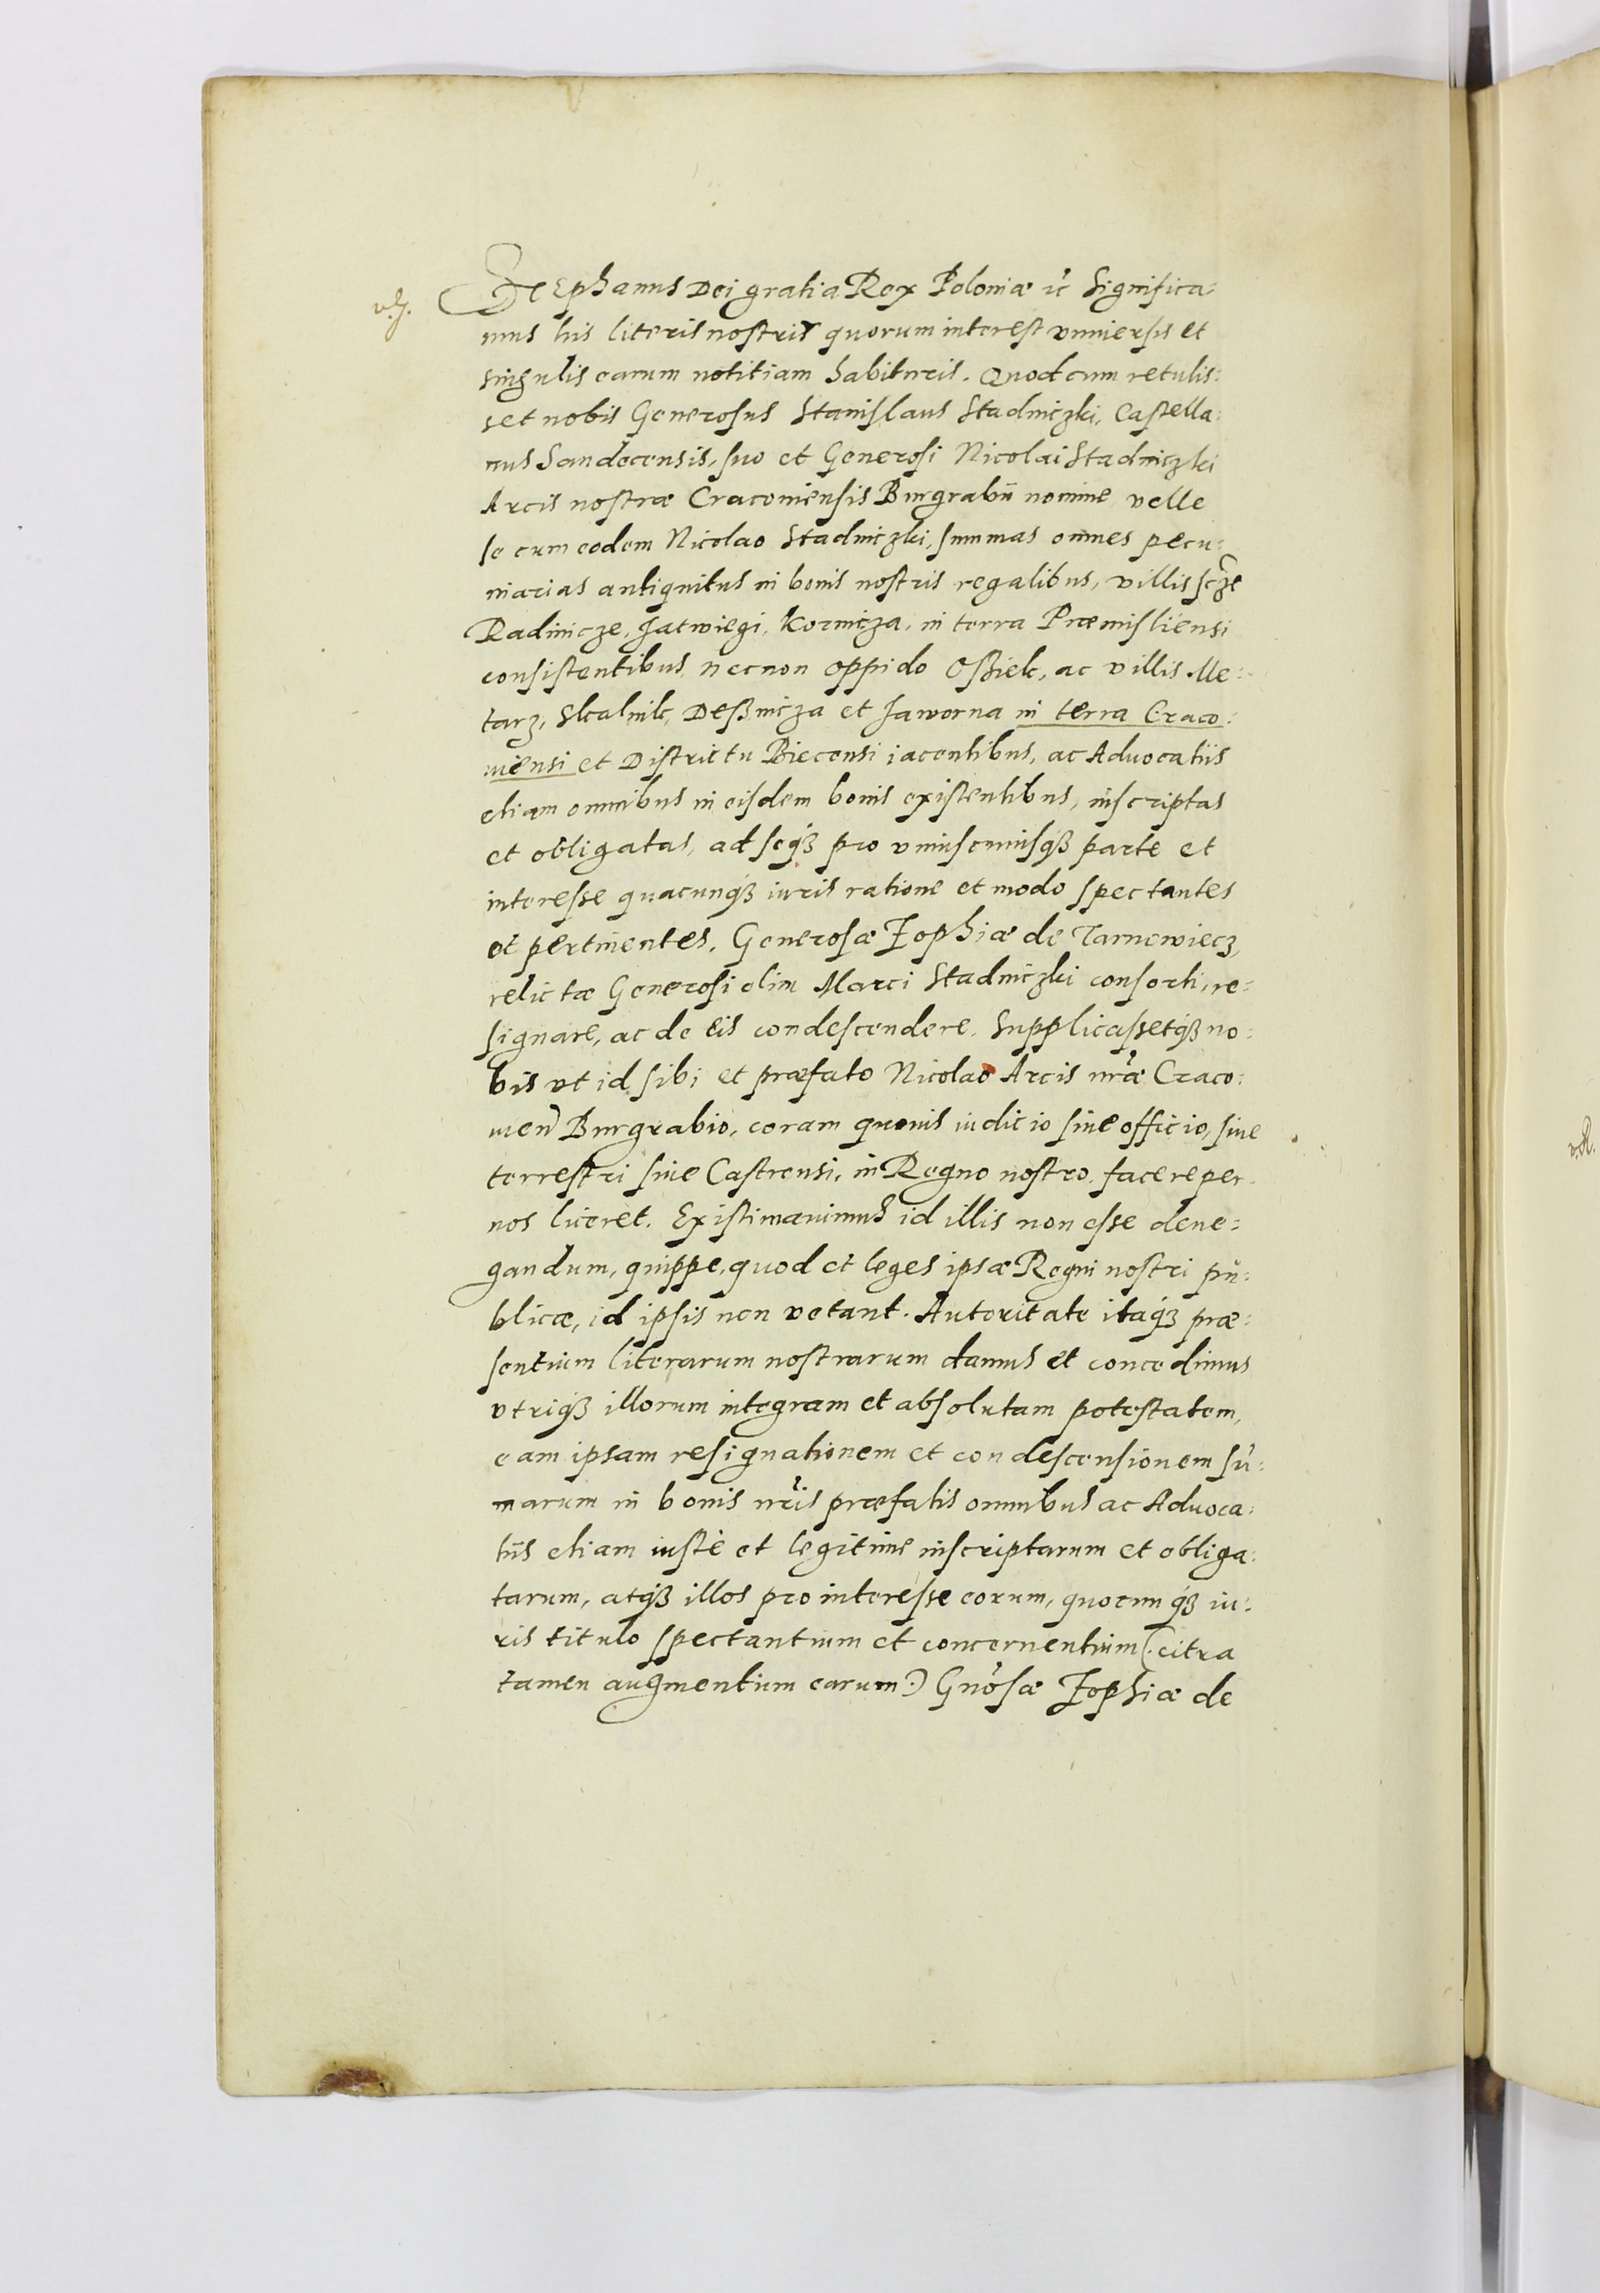 Stephanus Dei gratia Rex Poloniæ ic̃ Significa:
mus his literis nostris quorum interest vniuersis et
singulis earum notitiam habituris. Quod cum retulis:
set nobis Generosus Stanislaus Stadniczki, Castella:
nus Sandecensis, suo et Generosi Nicolai Stadniczki
Arcis nostræ Cracouiensis Burgrabii nomine velle
se cum eodem Nicolao Stadniczki, summas omnes pecu:
niarias antiquitus in bonis nostris regalibus, villis sc̃ze
Radinicze, Jatwiegi, Kornicza, in terra Præmisliensi
consistentibus necnon oppido Oßiek, ac villis Me:
tarz, Skalnik, Deßnicza et Jaworna in terra Craco:
uiensi et Districtu Biecensi iacentibus, ac Aduocatiis
etiam omnibus in eisdem bonis existentibus, inscriptas
et obligatas, ad seqȝ pro vniuscuiusqȝ parte et
interesse quacunqȝ iuris ratione et modo spectantes
et pertinentes, Generosæ Zophiæ de Tarnowiecz,
relictæ Generosi olim Marci Stadniczki consorti, re:
signare, ac de eis condescendere, Supplicassetqȝ no:
bis vt id sibi et præfato Nicolao Arcis nr̃æ Craco:
uien̄ Burgrabio, coram quouis iudicio siue officio, siue
terrestri siue Castrensi, in Regno nostro facere per
nos liceret. Existimauimus id illis non esse dene:
gandum, quippe, quod et leges ipsæ Regni nostri pu:
blicæ, id ipsis non vetant. Autoritate itaqȝ præ:
sentium literarum nostrarum damus et concedimus
vtriqȝ illorum integram et absolutam potestatem,
eam ipsam resignationem et condescensionem sũ:
marum in bonis nr̃is præfatis omnibus ac Aduoca:
tiis etiam iustè et legitime inscriptarum et obliga:
tarum, atqȝ illos pro interesse eorum, quocunqȝ iu:
ris titulo spectantium et concernentium (citra
tamen augmentium earum.) Gnõsæ Zophiæ de